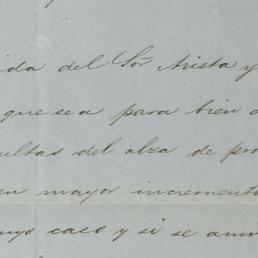 ida del Sor Arista y
que sea para bien
ultas del alza de pro
en mayor incremento
uyo caso y si se anim